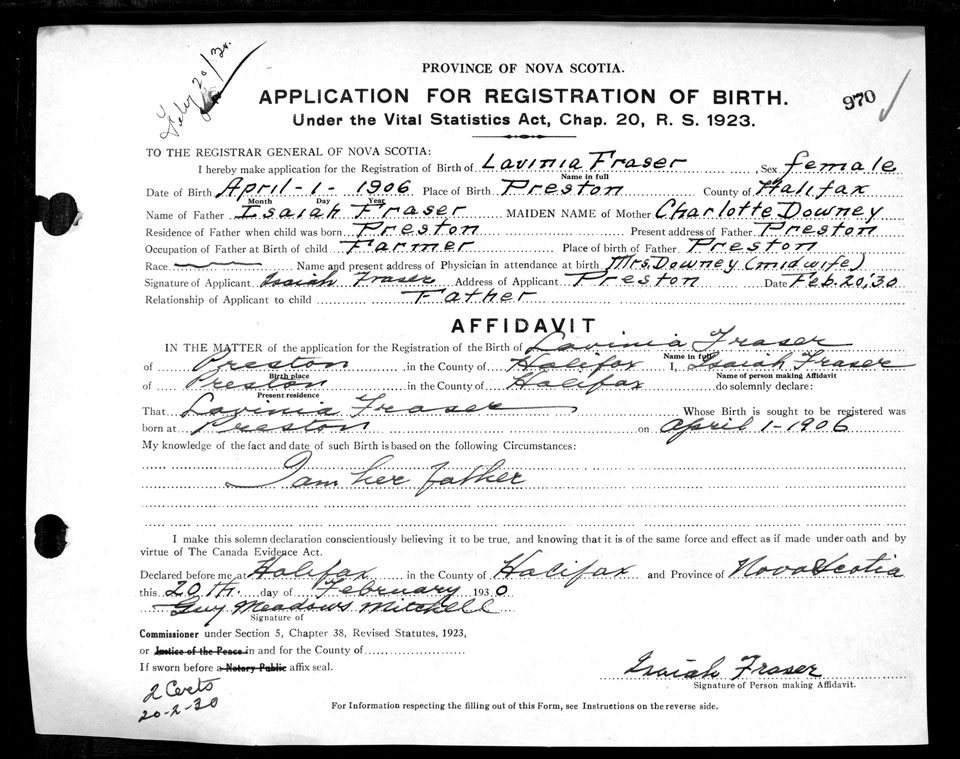 Feby 20/30.
PROVINCE OF NOVA SCOTIA.
APPLICATION FOR REGISTRATION OF BIRTH.
970
Under the Vital Statistics Act, Chap. 20, R. S. 1923.
TO THE REGISTRAR GENERAL OF NOVA SCOTIA:
I hereby make application for the Registration of Birth of Lavinia Fraser, Sex female
Name in full
Date of Birth April - 1 - 1906 Place of Birth Preston County of Halifax
Month Day Year
Name of Father Isaiah Fraser MAIDEN NAME of Mother Charlotte Downey
Residence of Father when child was born Preston Present address of Father Preston
Occupation of Father at Birth of child Farmer Place of birth of Father Preston
Race Name and present address of Physician in attendance at birth Mrs. Downey (midwife)
Signature of Applicant Isaiah Fraser Address of Applicant Preston Date Feb. 20, '30
Relationship of Applicant to child Father
AFFIDAVIT
IN THE MATTER of the application for the Registration of the Birth of Lavinia Fraser
Name in full
of Preston in the County of Halifax I, Isaiah Fraser
Birth place Name of person making Affidavit
of Preston in the County of Halifax do solemnly declare:
Present residence
That Lavinia Fraser Whose Birth is sought to be registered was
born at Preston on April 1 - 1906
My knowledge of the fact and date of such Birth is based on the following Circumstances:
I am her father
I make this solemn declaration conscientiously believing it to be true, and knowing that it is of the same force and effect as if made under oath and by
virtue of The Canada Evidence Act.
Declared before me at Halifax in the County of Halifax and Province of Nova Scotia
this 20th. day of February 1930
Guy Meadows Mitchell
Signature of
Commissioner under Section 5, Chapter 38, Revised Statutes, 1923,
or Justice of the Peace in and for the County of
If sworn before a Notary Public affix seal.
Isaiah Fraser
Signature of Person making Affidavit.
2 Certs
20-2-30
For Information respecting the filling out of this Form, see Instructions on the reverse side.